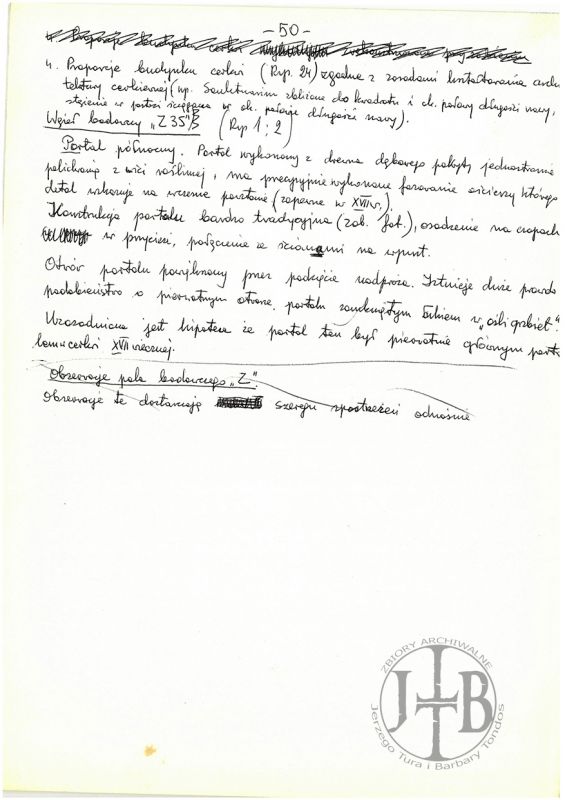 - 50 -
4. Proporcje budynku cerkwi (Ryp. 24) zgodne z zasadami kształtowania archi
tektury cerkiewnej (np. Sanktuarium zbliżone do kwadratu i ok. połowy długości nawy,
w ok. połowie długości nawy).
Węzeł badawczy „Z35"B (Ryp 1:2)
Portal północny. Portal wykonany z drewna dębowego pokryty jednostronnie
polichromią z wici roślinnej, ma precyzyjnie wykonane fazowanie ościeży którego
detal wskazuje na wczesne powstanie (zapewne w XVII w.).
Konstrukcja portalu bardzo tradycyjna (zob. fot.), osadzenie na czopach
w przyciesi, połączenie ze ścianami na wpust.
Otwór portalu powiększony przez podcięcie nadproża. Istnieje duże prawdo
podobieństwo o pierwotnym otworze portalu zamkniętym łukiem w „ośli grzbiet."
Uzasadniona jest hipoteza że portal ten był pierwotnie głównym porta
lem w cerkwi XVII wiecznej.
Obserwacje pola badawczego „Z"
Obserwacje te dostarczają szeregu spostrzeżeń odnośnie
ZBIORY ARCHIWALNE
JTB
Jerzego Tura i Barbary Tondos